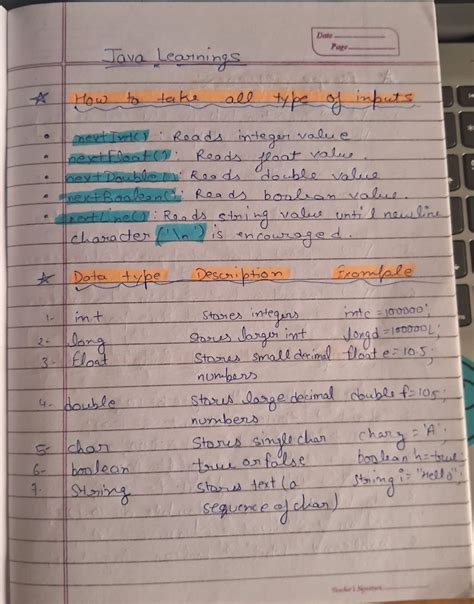 Date
Page
Java Learnings
☆ How to take all type of inputs
• nextInt() : Reads integer value
• nextFloat() : Reads float value.
• nextDouble() : Reads double value
• nextBoolean() : Reads boolean value.
• nextLine() : Reads string value until newline
character ('\n') is encouraged.
☆ Data type Description Example
1. int Stores integers int c = 100000;
2. long Stores larger int long d = 100000L;
3. Float Stores small decimal float e = 10.5;
numbers
4. double Stores large decimal double f = 10.5;
numbers
5. char Stores single char char g = 'A';
6. boolean true or false boolean h = true
7. String Stores text (a string i = "Hello";
sequence of char)
Teacher's Signature